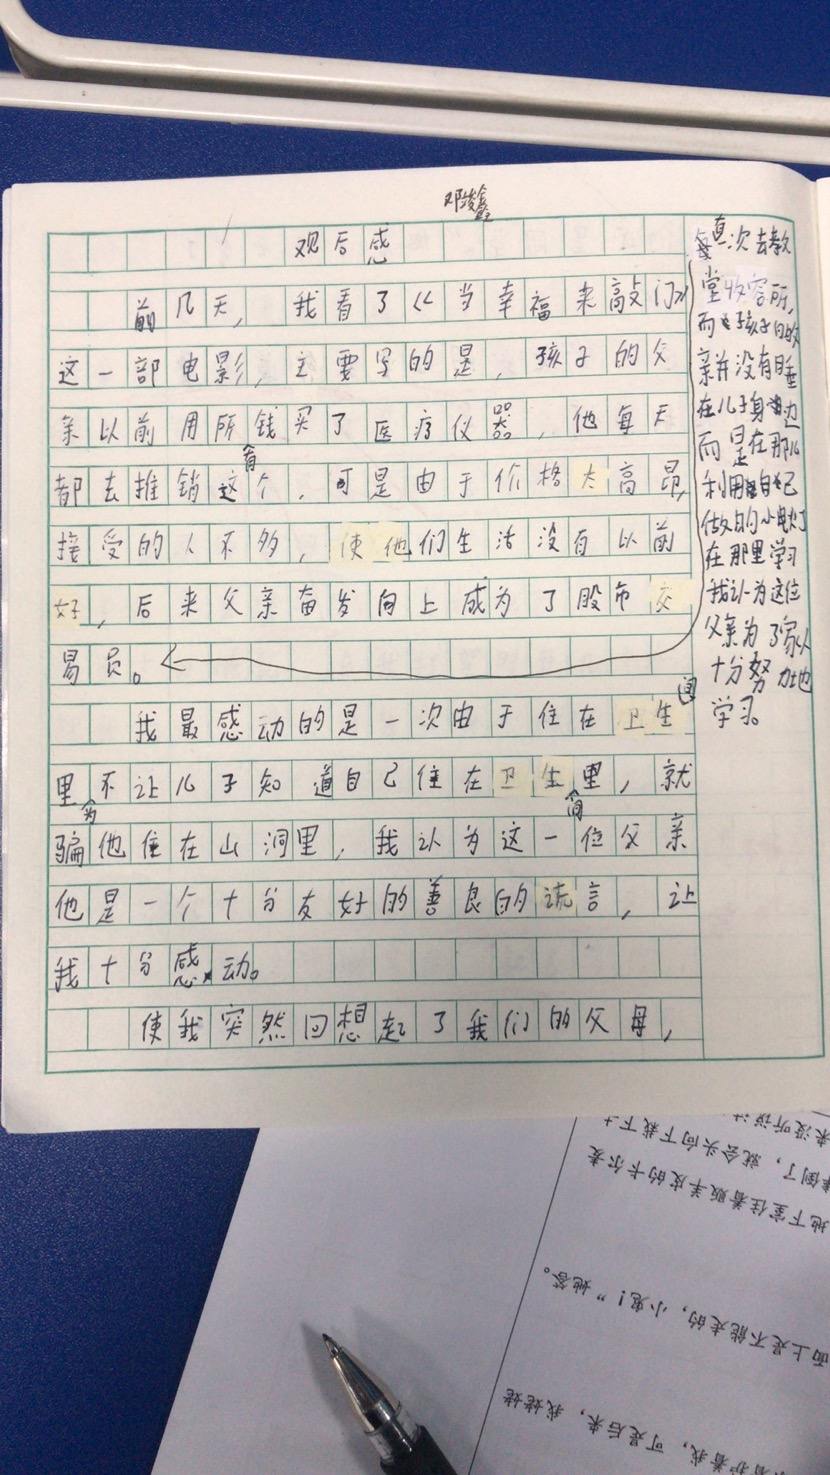 邓逡鑫
观后感
前几天，我看了《当幸福来敲门》
这一部电影，主要写的是，孩子的父
亲以前用所有钱买了医疗仪器，他每天
都去推销这个，可是由于价格太高昂，
接受的人不多，使他们生活没有以前
好，后来父亲奋发向上成为了股市交
易员。
每次去教
堂收容所，
而孩子的父
亲并没有睡
在儿子身边
而是在那儿
利用自己
做的小电灯
在那里学习
我认为这位
父亲为了家人
十分努力地
学习。
我最感动的是一次由于住在卫生间
里为不让儿子知道自己住在卫生间里，就
骗他住在山洞里，我认为这一位父亲
他是一个十分友好的善良的谎言，让
我十分感动。
使我突然回想起了我们的父母，
来没听说过
来倒了，就会头向下栽下去
地下室住着贩羊皮的卡尔麦
面上是不能走的，小鬼！”她答。
着护着我，可是后来，我姥姥